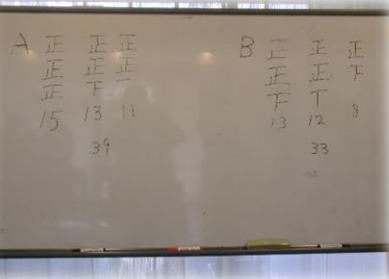 A 正 正 正
正 正 正
正 下 一
15 13 11
39
B 正 正 正
正 正 下
下 T
13 12 8
33